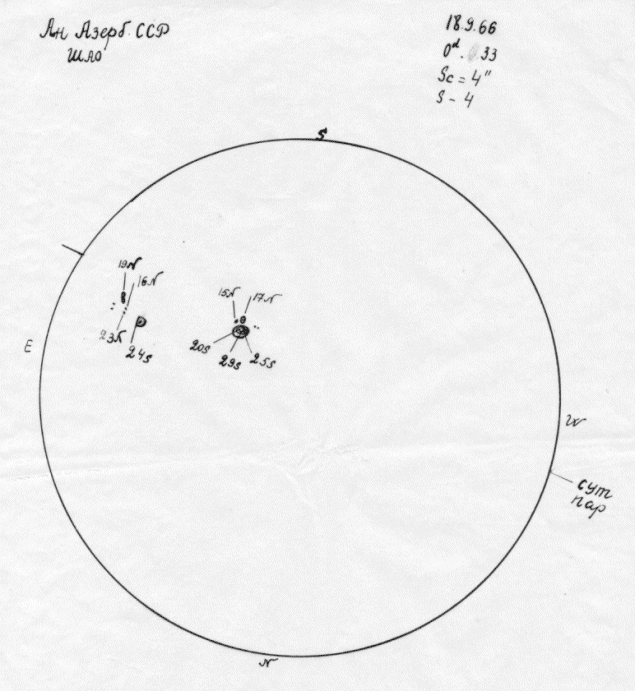 Ан Азерб. ССР
ШАО
18.9.66
0d. 33
Sc = 4"
S - 4
S
19N
16N
15N
17N
E
23N
24s
20s
29s
25s
W
сут
пар
N